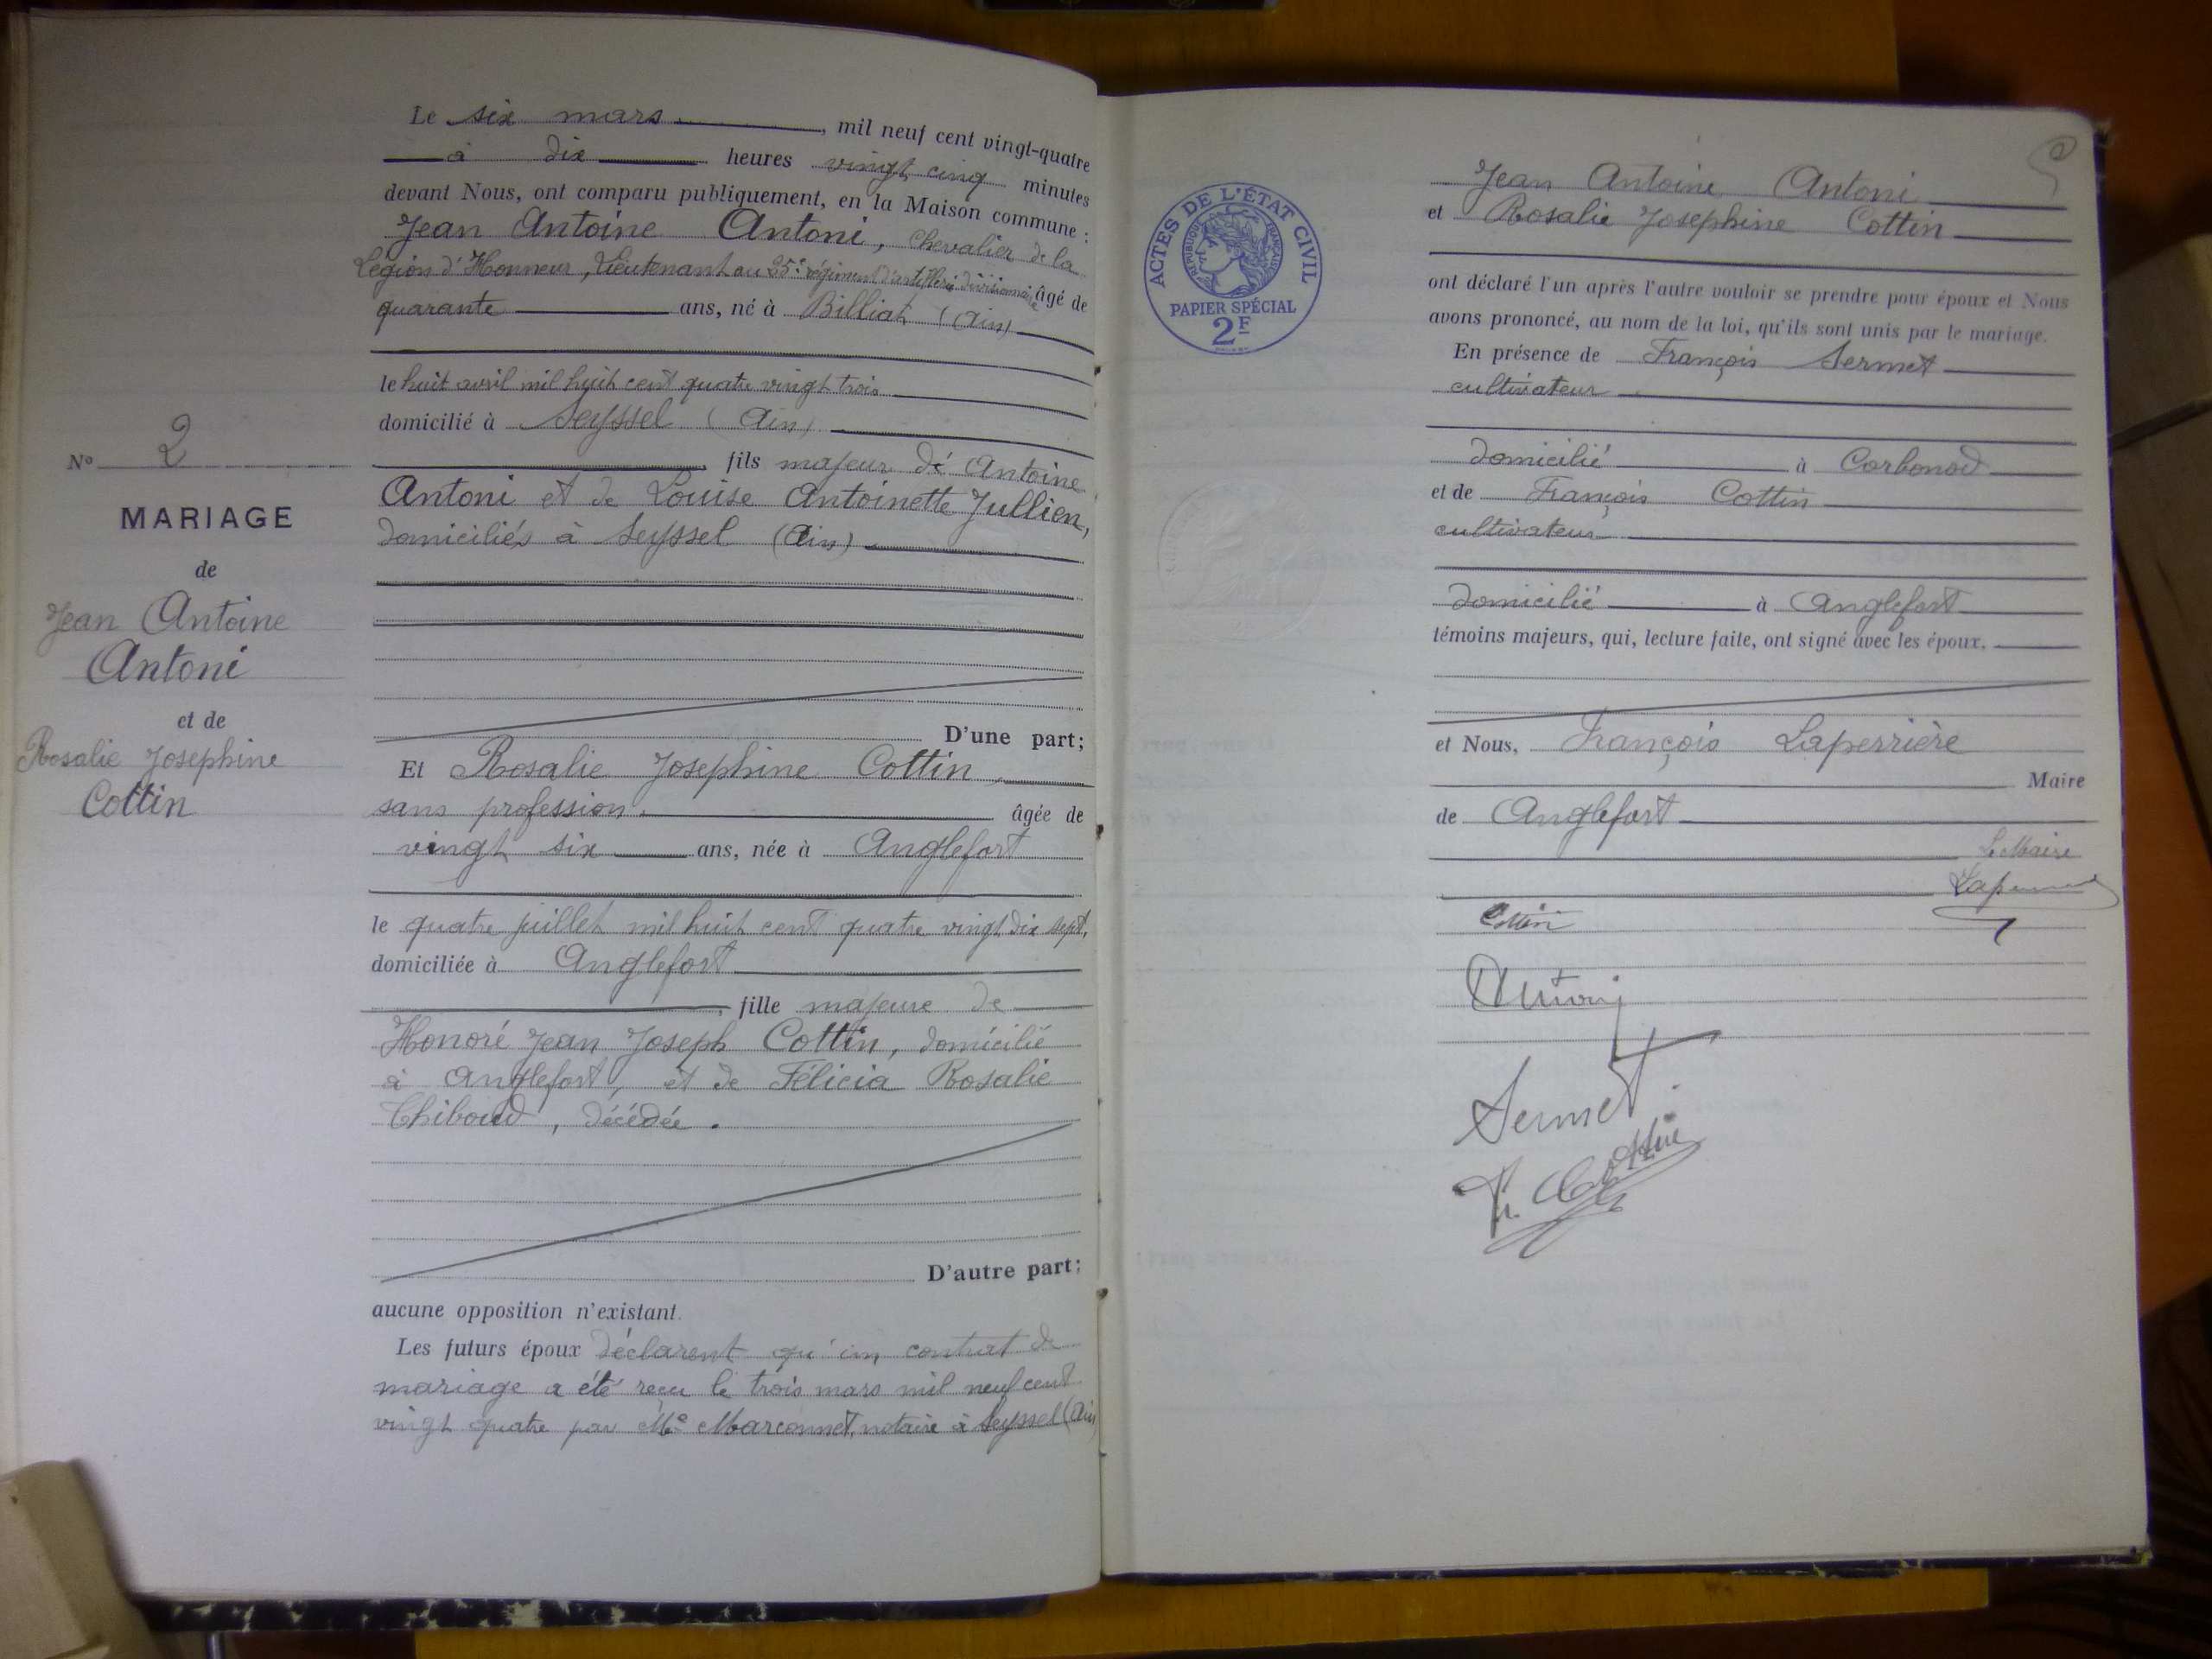 Le six mars, mil neuf cent vingt-quatre
à dix heures vingt cinq minutes
devant Nous, ont comparu publiquement, en la Maison commune :
Jean Antoine Antoni, Chevalier de la
Légion d'Honneur, Lieutenant au 35e régiment d'artillerie divisionnaire âgé de
quarante ans, né à Billiat (Ain)
le huit avril mil huit cent quatre vingt trois
domicilié à Seyssel (Ain)
fils majeur de Antoine
Antoni et de Louise Antoinette Jullien,
domiciliés à Seyssel (Ain)
D'une part;
Et Rosalie Josephine Cottin,
sans profession. âgée de
vingt six ans, née à Anglefort
le quatre juillet mil huit cent quatre vingt dix sept,
domiciliée à Anglefort
, fille majeure de
Honoré Jean Joseph Cottin, domicilié
à Anglefort, et de Félicia Rosalie
Chiboud, décédée.
D'autre part;
aucune opposition n'existant.
Les futurs époux déclarent qu'un contrat de
mariage a été reçu le trois mars mil neuf cent
vingt quatre par Me Marconnet, notaire à Seyssel (Ain)
No 2
MARIAGE
de
Jean Antoine
Antoni
et de
Rosalie Josephine
Cottin
ACTES DE L'ÉTAT CIVIL
RÉPUBLIQUE FRANÇAISE
PAPIER SPÉCIAL
2F
Jean Antoine Antoni
et Rosalie Josephine Cottin
ont déclaré l'un après l'autre vouloir se prendre pour époux et Nous
avons prononcé, au nom de la loi, qu'ils sont unis par le mariage.
En présence de François Sermet
cultivateur
domicilié à Corbonod
et de François Cottin
cultivateur
domicilié à Anglefort
témoins majeurs, qui, lecture faite, ont signé avec les époux.
et Nous, François Laperrière
Maire
de Anglefort
Le Maire
Cottin
Antoni
Sermet